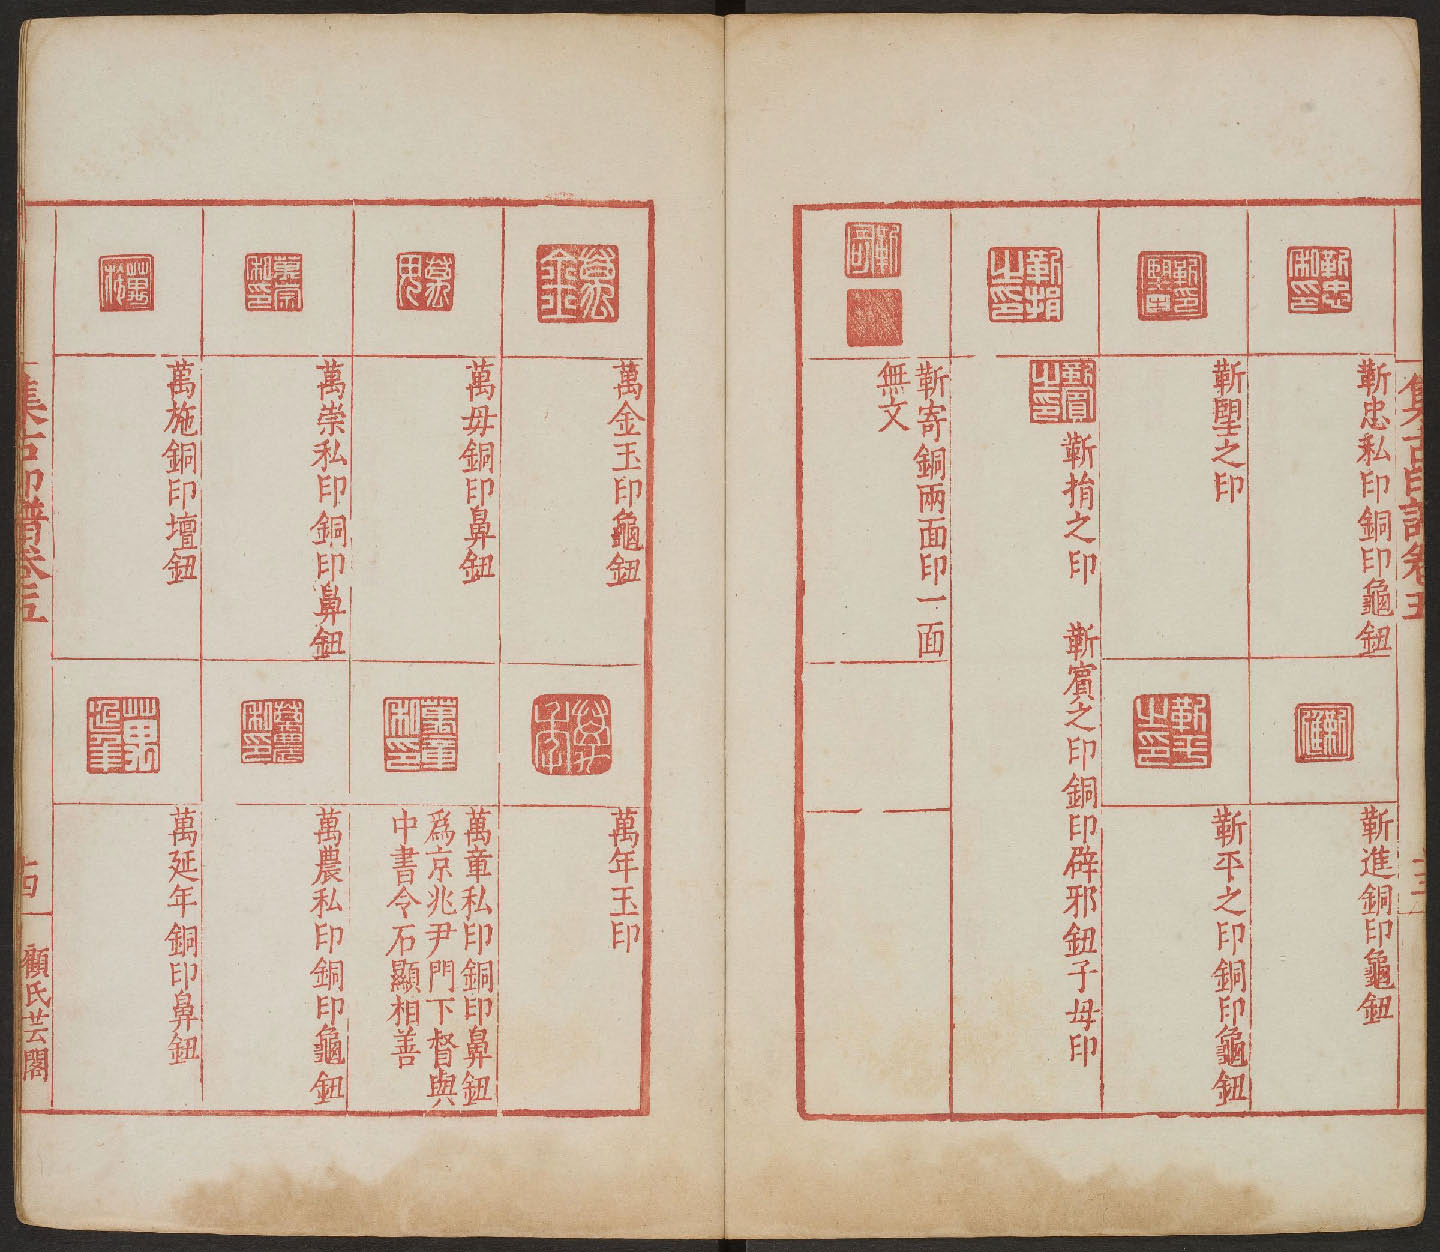 集古印譜卷五
靳忠私印銅印龜鈕
靳進銅印龜鈕
靳之印
靳平之印銅印龜鈕
靳捐之印　靳賓之印銅印辟邪鈕子母印
靳寄銅兩面印一面
無文
萬金玉印龜鈕
萬年玉印
萬毋銅印鼻鈕
萬章私印銅印鼻鈕
爲京兆尹門下督與
中書令石顯相善
萬崇私印銅印鼻鈕
萬農私印銅印龜鈕
萬施銅印壇鈕
萬延年銅印鼻鈕
集古印譜卷五
十四
顧氏芸閣